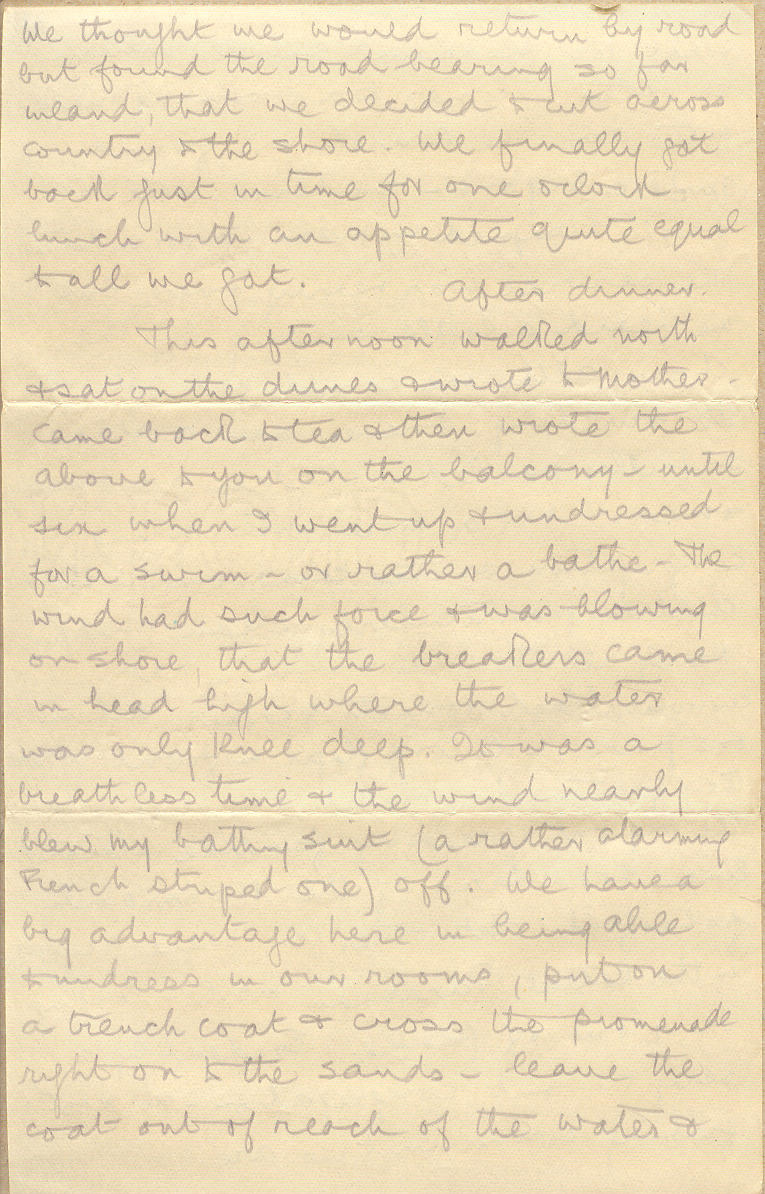 We thought we would return by road
but found the road bearing so far
inland, that we decided to cut across
country to the shore. We finally got
back just in time for one oclock
lunch with an appetite quite equal
to all we got. After dinner.
This afternoon walked north
& sat on the dunes & wrote to Mother -
came back to tea & then wrote the
above to you on the balcony - until
six when I went up & undressed
for a swim - or rather a bathe - The
wind had such force & was blowing
on shore, that the breakers came
in head high where the water
was only knee deep. It was a
breathless time & the wind nearly
blew my bathing suit (a rather alarming
French striped one) off. We have a
big advantage here in being able
to undress in our rooms, put on
a trench coat & cross the promenade
right on to the sands - leave the
coat out of reach of the water &